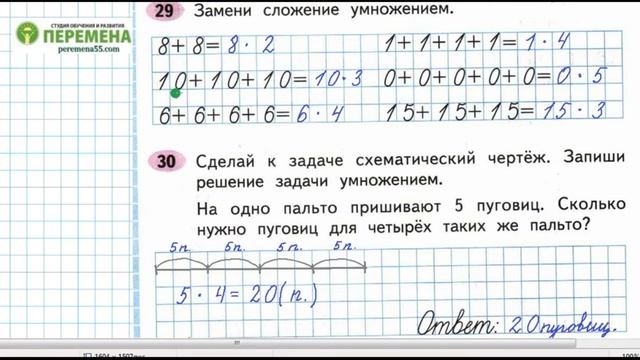 СТУДИЯ ОБУЧЕНИЯ И РАЗВИТИЯ
ПЕРЕМЕНА
peremena55.com
29 Замени сложение умножением.
8+8=8·2
1+1+1+1=1·4
10+10+10=10·3
0+0+0+0+0=0·5
6+6+6+6=6·4
15+15+15=15·3
30 Сделай к задаче схематический чертёж. Запиши
решение задачи умножением.
На одно пальто пришивают 5 пуговиц. Сколько
нужно пуговиц для четырёх таких же пальто?
5п. 5п. 5п. 5п.
5·4=20(п.)
Ответ: 20 пуговиц.